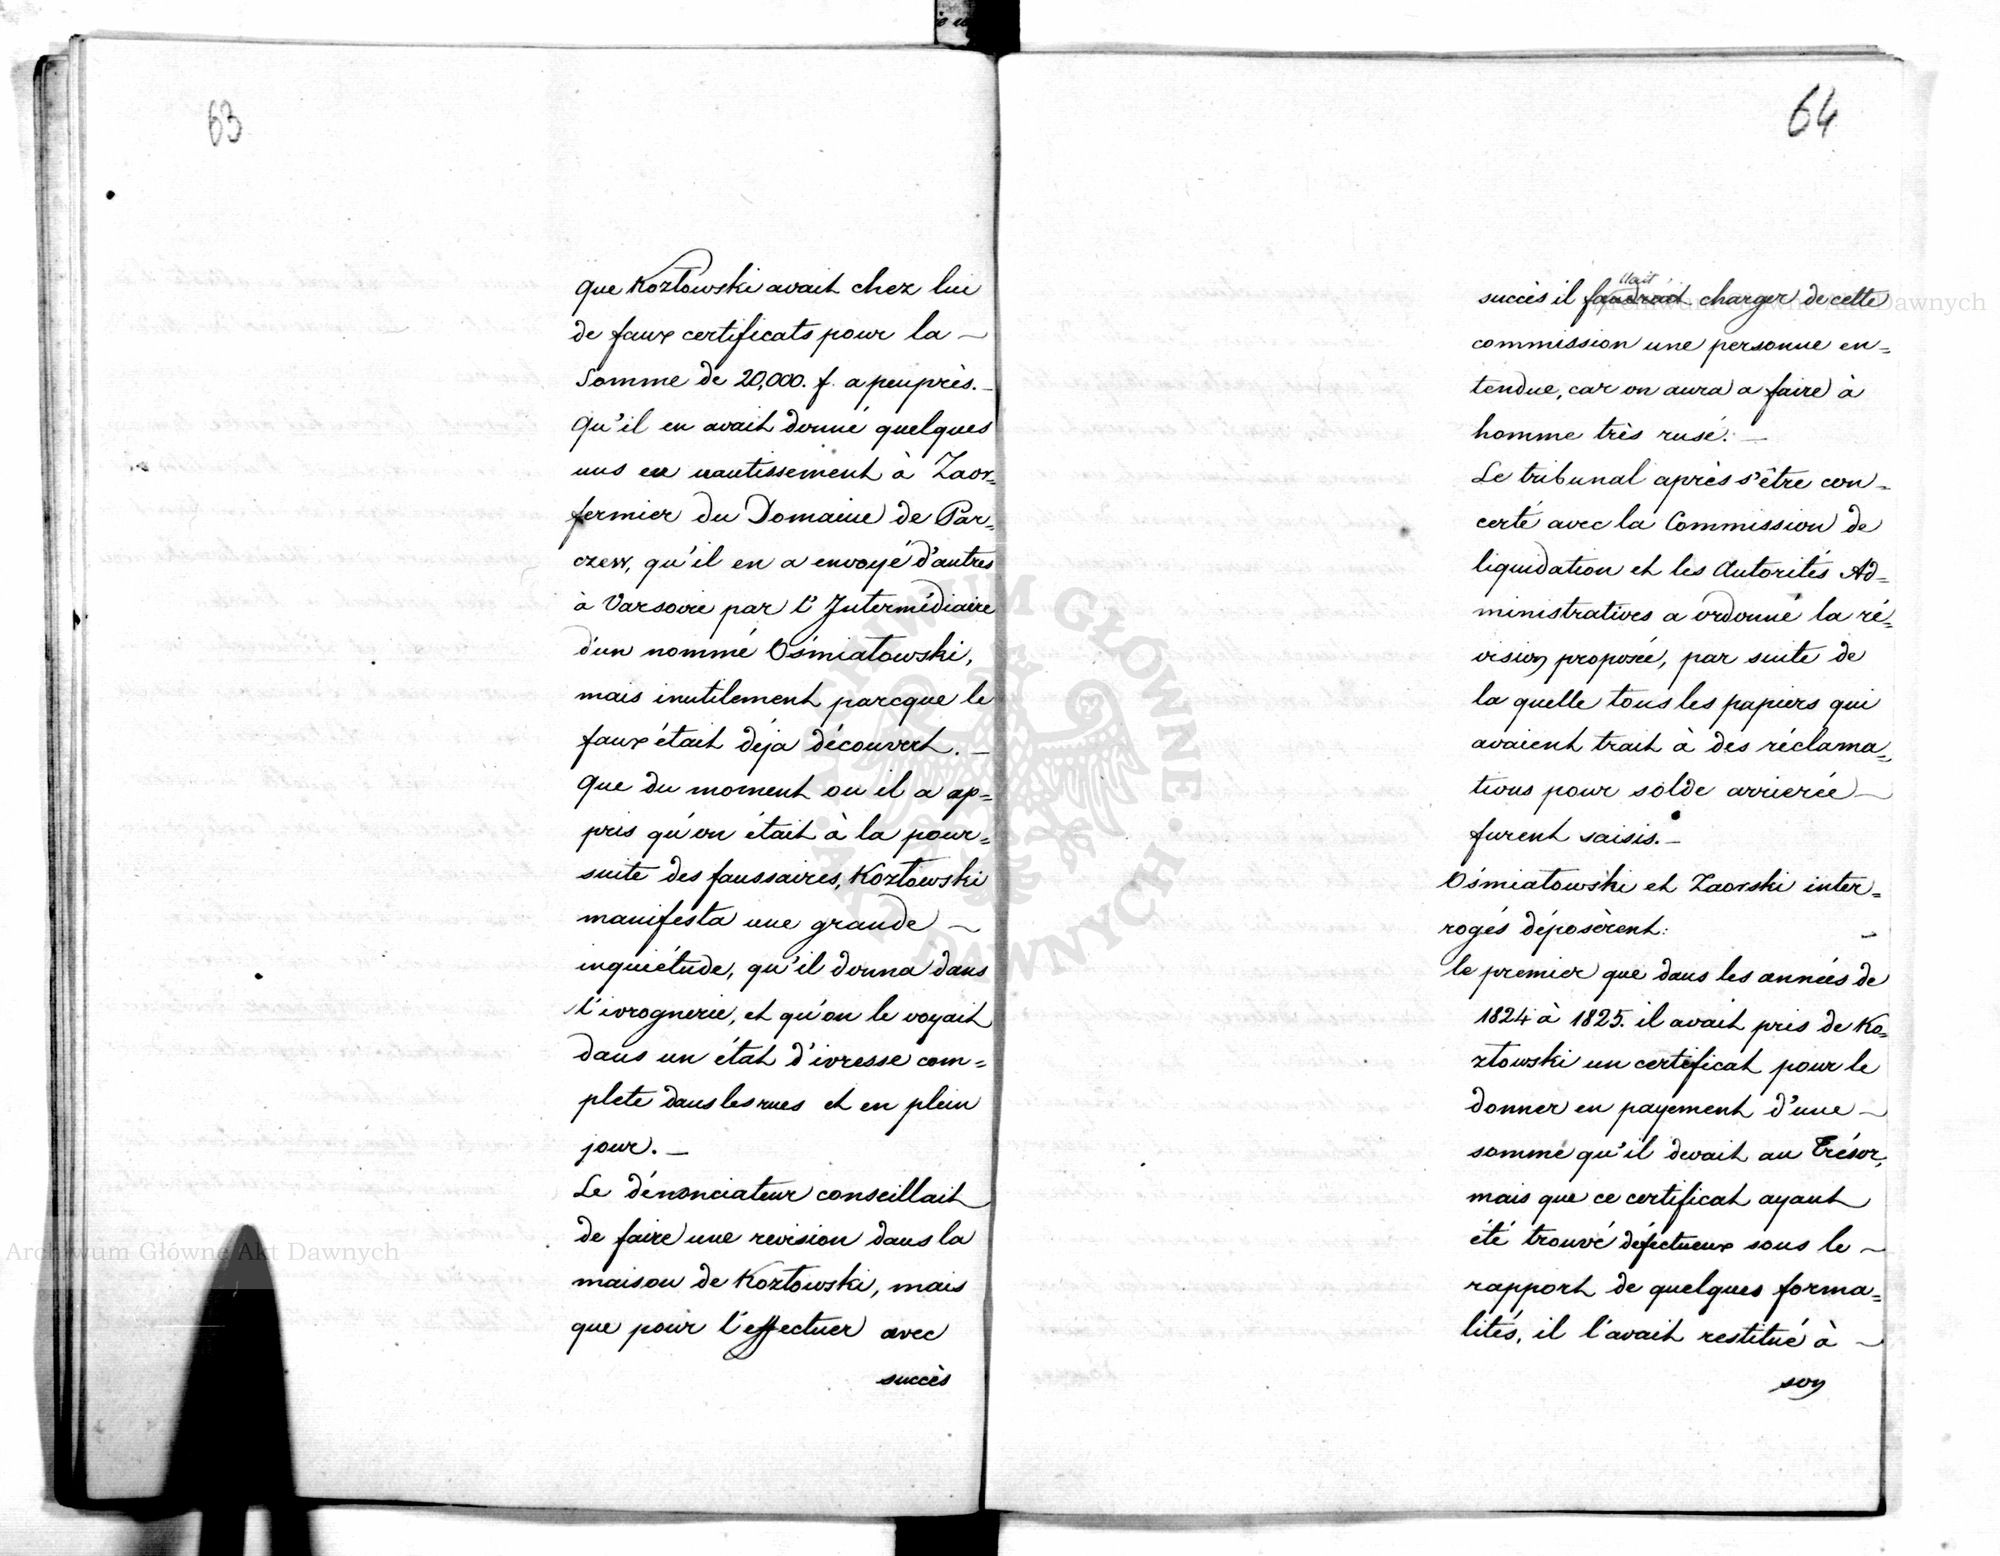 63
que Kozłowski avait chez lui
de faux certificats pour la ~
Somme de 20,000. f. a peuprès. _
Qu'il en avait donné quelques
uns en nantissement à Zaor=
fermier du Domaine de Par=
czew, qu'il en a envoyé d'autres
à Varsovie par l'Intermédiaire
d'un nommé Ośmiatowski,
mais inutilement parcque le
faux était déja découvert. _
Que du moment ou il a ap=
pris qu'on était à la pour=
suite des faussaires, Kozłowski
manifesta une grande ~
inquiétude, qu'il donna dans
l'ivrognerie, et qu'on le voyait
dans un état d'ivresse com=
plete dans les rues et en plein
jour. _
Le dénonciateur conseillait
de faire une revision dans la
maison de Kozłowski, mais
que pour l'effectuer avec
succès
64
llait
succès il faudrait charger de cette
commission une personne en=
tendue, car on aura a faire à
homme très rusé. _
Le tribunal après s'être con=
certé avec la Commission de
liquidation et les Autorités Ad=
ministratives a ordonné la ré=
vision proposée, par suite de
la quelle tous les papiers qui
avaient trait à des réclama=
tions pour solde arrierée ~
furent saisis. _
Ośmiatowski et Zaorski inter=
rogés déposèrent: _
le premier que dans les années de
1824 à 1825. il avait pris de Ko=
złowski un certificat pour le
donner en payement d'une ~
somme qu'il devait au Trésor,
mais que ce certificat ayant
été trouvé défectueux sous le ~
rapport de quelques forma=
lités, il l'avait restitué à ~
son
Archiwum Główne Akt Dawnych
Archiwum Główne Akt Dawnych
ARCHIWUM GŁÓWNE AKT DAWNYCH